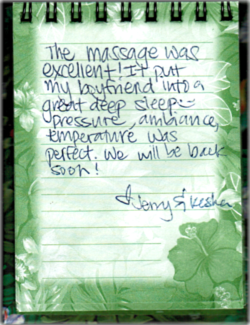 The massage was
excellent! It put
my boyfriend into a
great deep sleep
pressure, ambiance,
temperature was
perfect. We will be back
soon!
Jerry & kesha